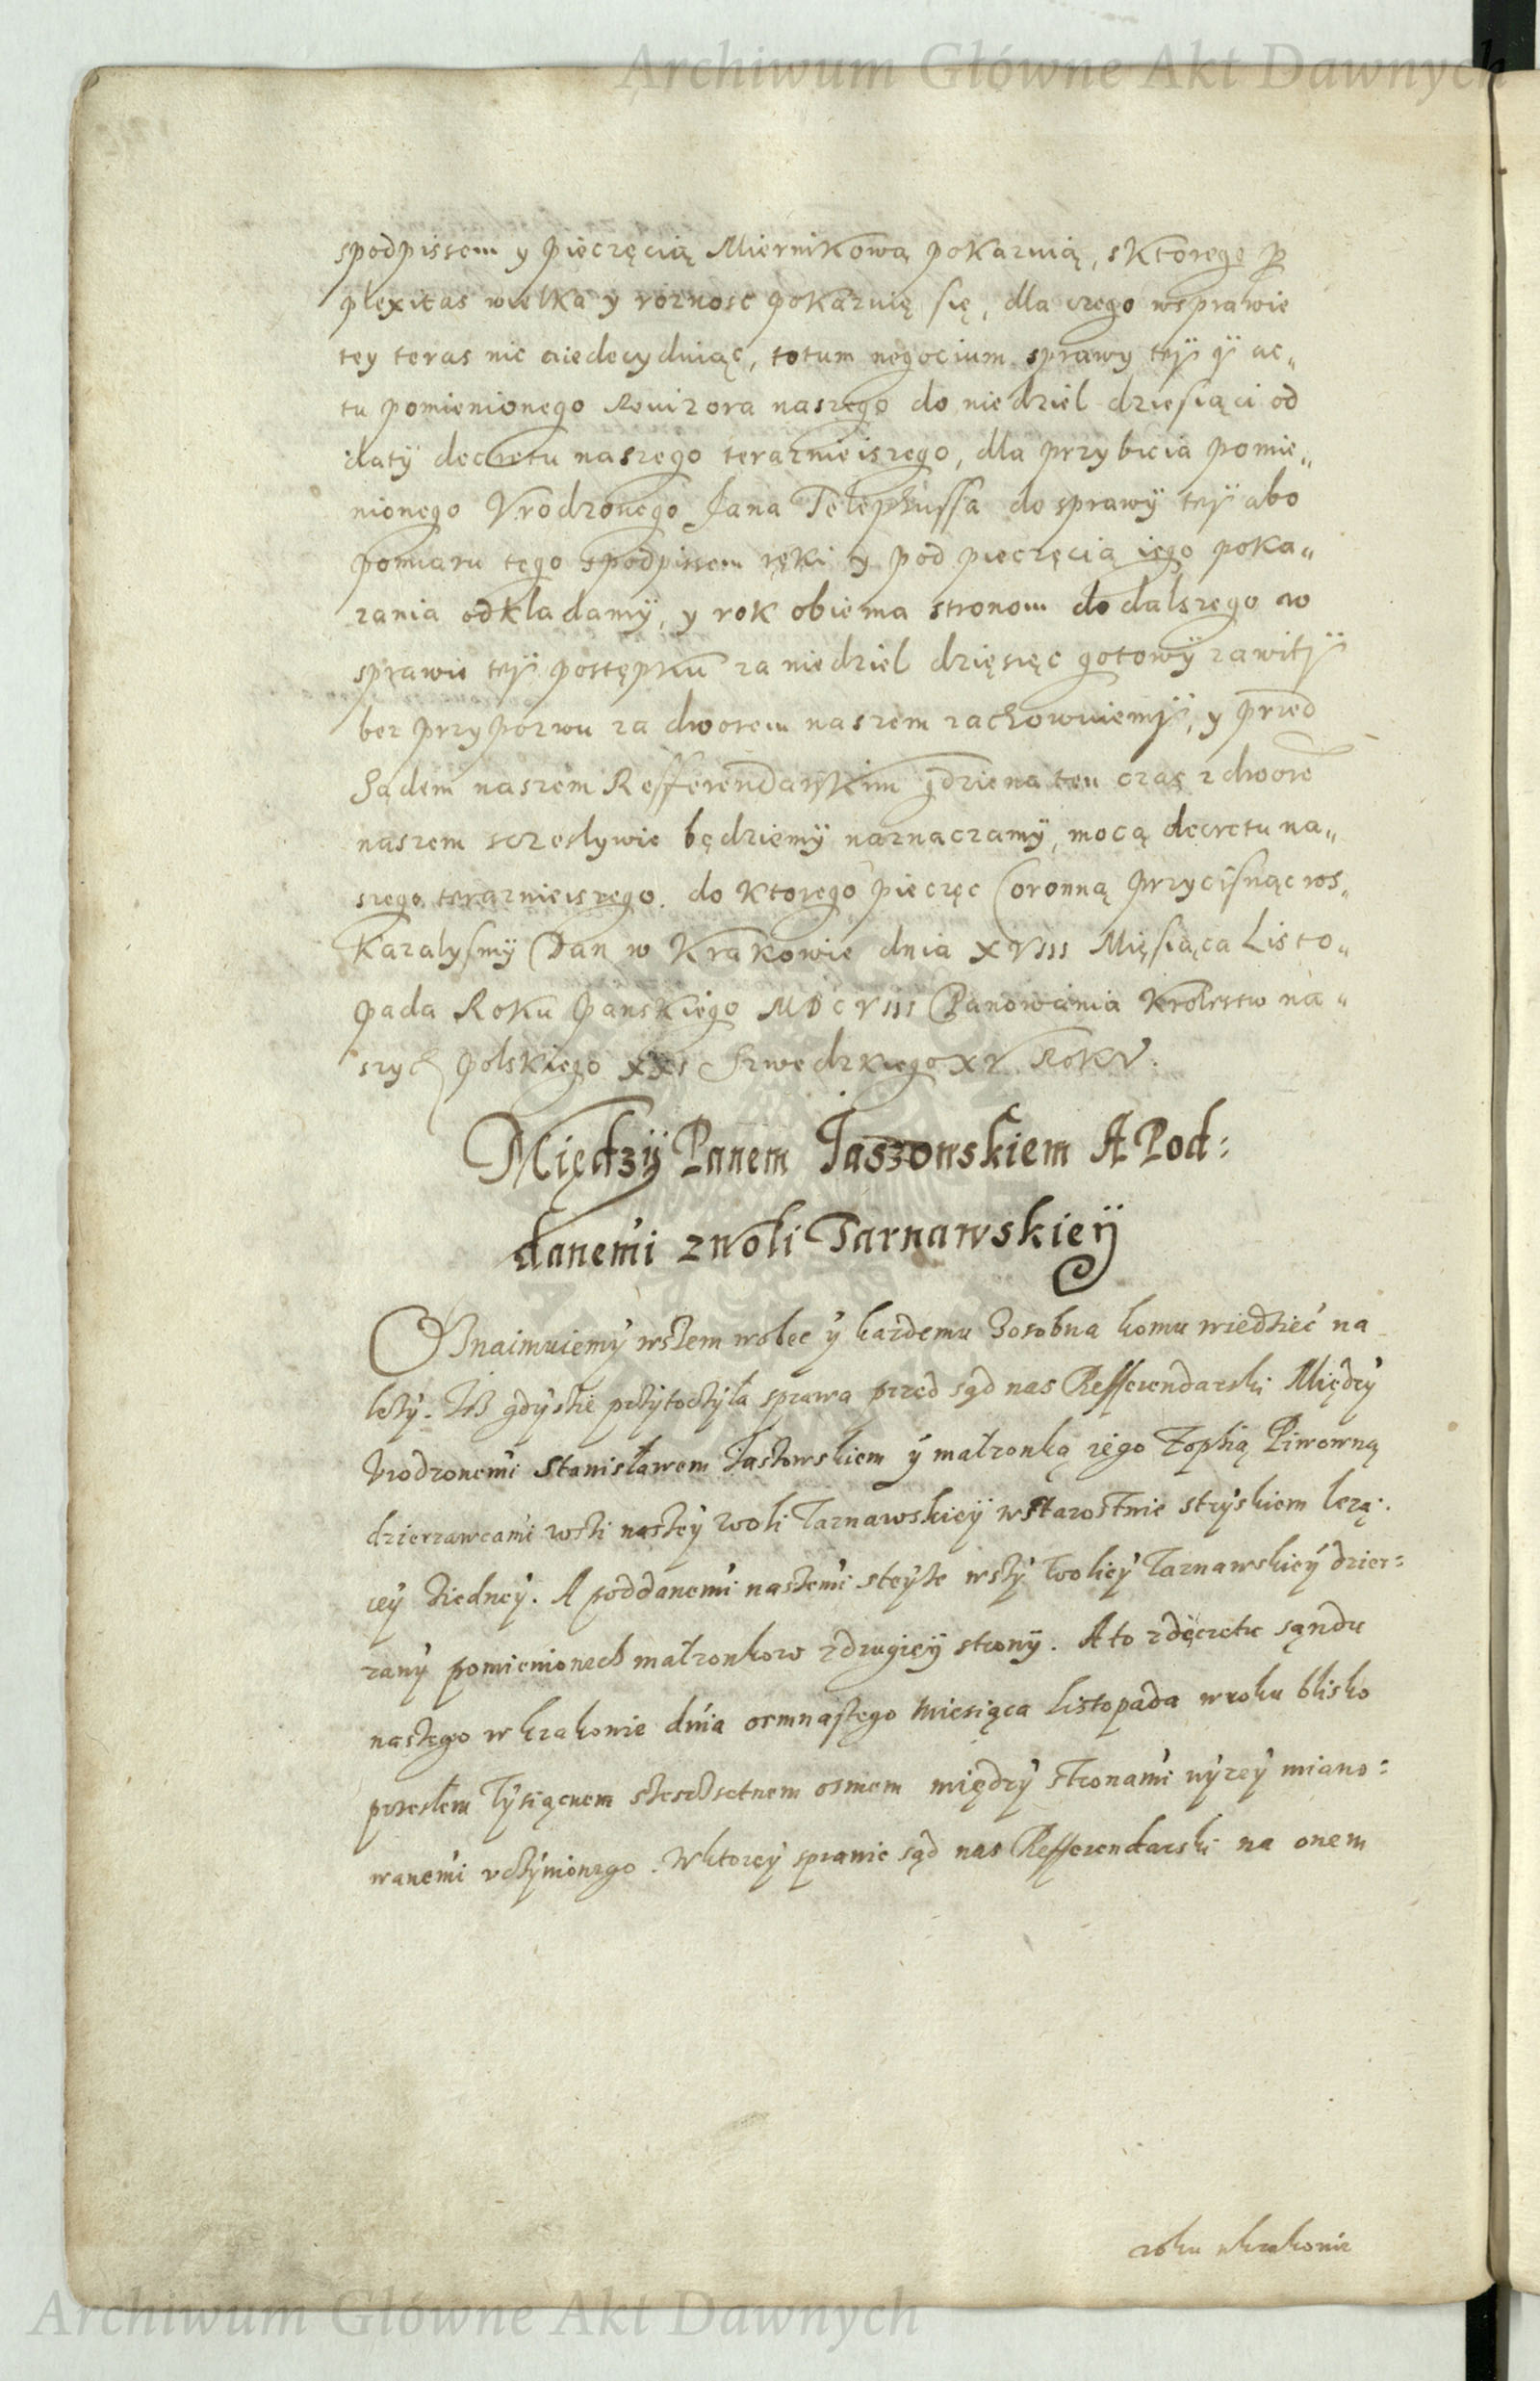 Archiwum Główne Akt Dawnych
spodpissem y pieczęcią Miernikową pokazuią, sktorego p
plexitas wielka y roznosc pokazuię się, dla czego wsprawie
tey teras nic niedecyduiąc, totum negocium sprawy teÿ ÿ ac„
tu pomienionego Reuizora naszego do niedziel dziesiąci od
datÿ decretu naszego teraznieiszego, dla przybicia pomie„
nionego Vrodzonego Jana Telephussa do sprawÿ teÿ abo
pomiaru tego spodpissem ręki y pod pieczęcią iego poka„
zania odkladamÿ, y rok obiema stronom do dalszego w
sprawie teÿ postępku za niedziel dzięsięc gotowÿ zawitÿ
bez przypozwu za dworem naszem zachowuiemÿ, y przed
Sądem naszem Refferendarskim gdziena ten czas z dwore
naszem szczeslywie będziemÿ naznaczamÿ, mocą decretu na„
szego teraznieiszego. do ktorego pieczęc Coronną przycisnąc ros„
kazalysmÿ Dan w Krakowie dnia XVIII Mięsiąca Listo„
pada Roku Panskiego MDCVIII Panowania Krolestw na„
szych Polskiego XXI Szwedzkiego XV. RokV.
Międzÿ Panem Jaszowskiem A Pod:
danemi zwoli Tarnawskieÿ
Oznaimuiemy wszem wobec y kazdemu zosobna komu wiedzieć na
lezy. Iz gdyszie przytoczyła sprawa przed sąd nas Refferendarski Między
Vrodzonemi Stanisławem Jaszowskiem y małzonką iego Zophią Piwowną
dzierzawcami wsti naszey Woli Tarnawskieÿ wstarostwie stryskiem lezą:
cey ziedney. A poddanemi naszemi steyze wsÿ Woliey Tarnawskiey dzier:
zawy pomienionech małzonkow zdrugieÿ stronÿ. A to zdęcretu sąndu
naszego w krakowie dnia osmnastego Miesiąca Listopada wroku blisko
przeszlem Tysiącnem szesczsetnem osmem między stronami wyzey miano:
wanemi vczynionego. Wktorey sprawie sąd nas Refferendarski na onem
roku wkrakowie
Archiwum Główne Akt Dawnych